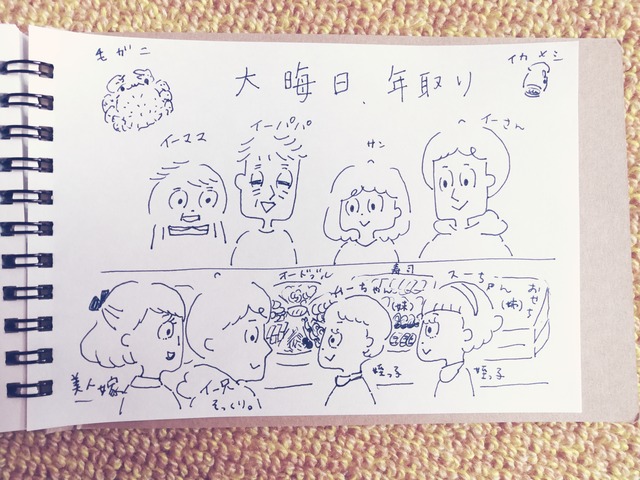 毛ガニ
大晦日、年取り
イカメシ
イーママ
イーパパ
サン
イーさん
オードブル
寿司
かーちゃん
(妹)
スーちゃん
(妹)
おせち
美人嫁
イー兄
そっくり。
姪っ子
姪っ子